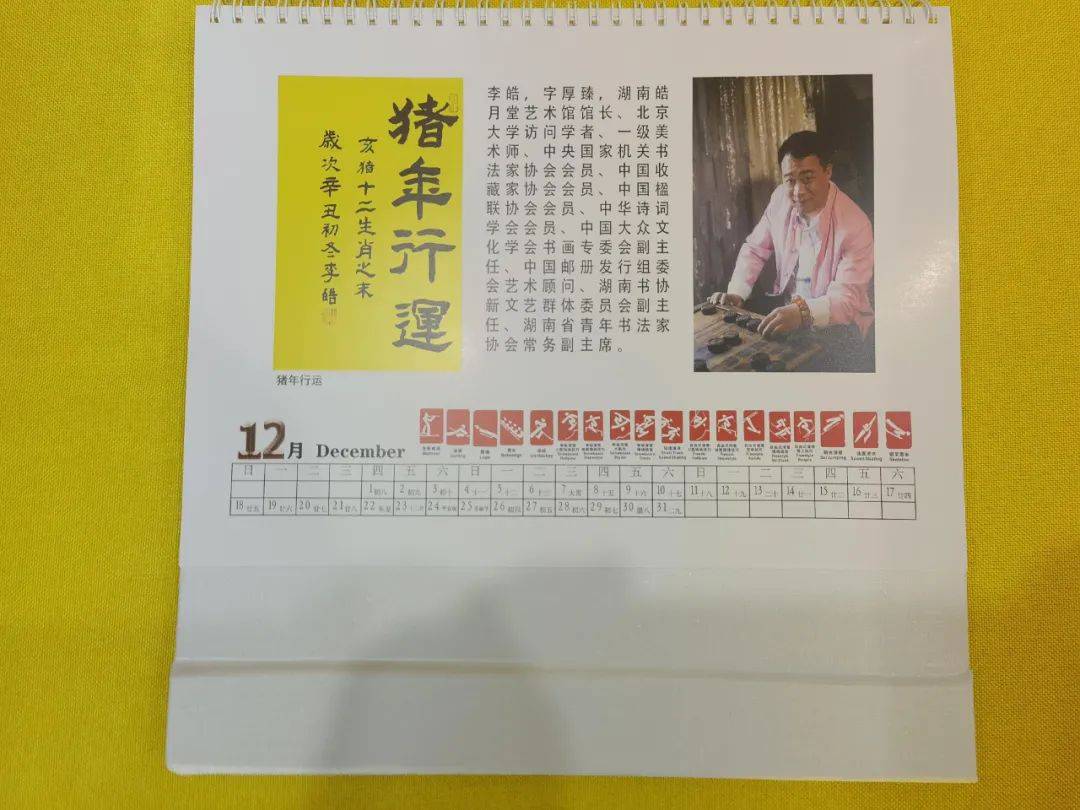 猪年行運
亥猪十二生肖之末
歲次辛丑初冬李皓
猪年行运
李皓，字厚臻，湖南皓
月堂艺术馆馆长、北京
大学访问学者、一级美
术师、中央国家机关书
法家协会会员、中国收
藏家协会会员、中国楹
联协会会员、中华诗词
学会会员、中国大众文
化学会书画专委会副主
任、中国邮册发行组委
会艺术顾问、湖南书协
新文艺群体委员会副主
任、湖南省青年书法家
协会常务副主席。
12月 December
日 一 二 三 四 五 六 日 一 二 三 四 五 六 日 一 二 三 四 五 六
1初八 2初九 3初十 4十一 5十二 6十三 7大雪 8十五 9十六 10十七 11十八 12十九 13二十 14廿一 15廿二 16廿三 17廿四
18廿五 19廿六 20廿七 21廿八 22冬至 23十二月 24平安夜 25圣诞节 26初四 27初五 28初六 29初七 30腊八 31二九